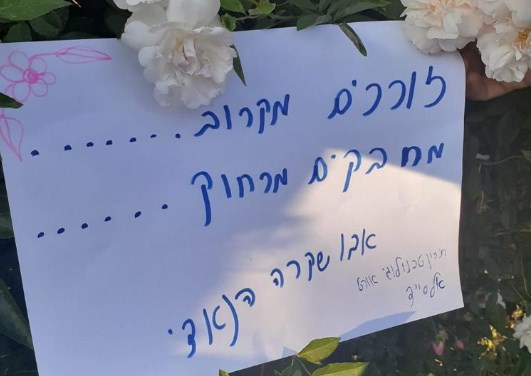 זוררים מקרוב.......
מחבקים מרחוק ......
אבו שקרה הנאדי
תיכון טכנולוגי אורט
אלסייד